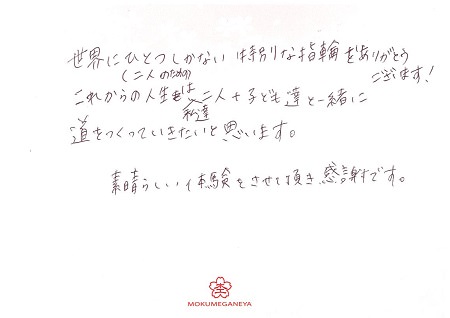 世界にひとつしかない特別な指輪をありがとうございます!
(二人のための
これからの人生は二人+子ども達と一緒に
私達
道をつくっていきたいと思います。
素晴らしい体験をさせて頂き感謝です。
MOKUMEGANEYA